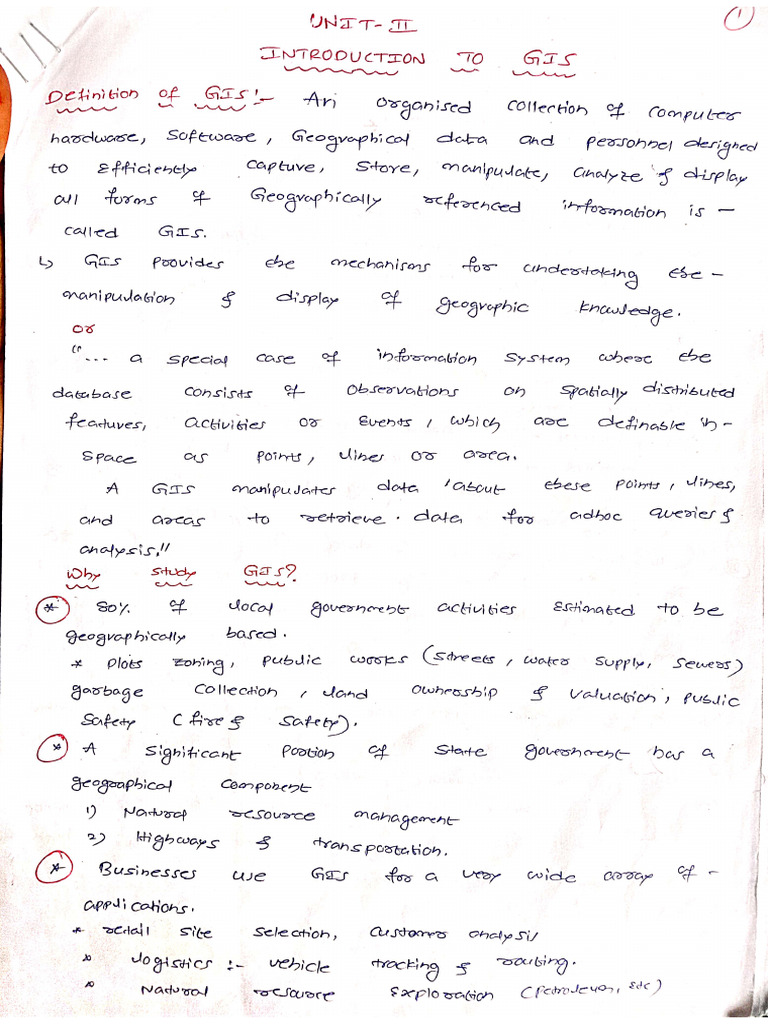 1
UNIT-II
INTRODUCTION TO GIS
Definition of GIS:- An organised collection of computer
hardware, Software, Geographical data and personnel designed
to Efficiently Capture, Store, manipulate, analyze & display
all forms of Geographically referenced information is -
called GIS.
↳ GIS provides the mechanisms for undertaking the -
manipulation & display of geographic knowledge.
or
"... a special case of information system where the
database consists of observations on spatially distributed
features, activities or Events, which are definable in -
Space as points, lines or area.
A GIS manipulates data 'about these points, lines,
and areas to retrieve data for adhoc queries &
analysis."
Why study GIS?
* 80% of local government activities Estimated to be
geographically based.
* plots zoning, public works (streets, water supply, sewers)
garbage collection, land ownership & valuation, public
Safety (fire & safety).
* A significant portion of state government has a
geographical component
1) Natural resource management
2) Highways & transportation.
* Businesses use GIS for a very wide array of -
applications.
* retail site selection, customer analysis
* logistics :- vehicle tracking & routing.
* Natural resource Exploration (petroleum, etc)